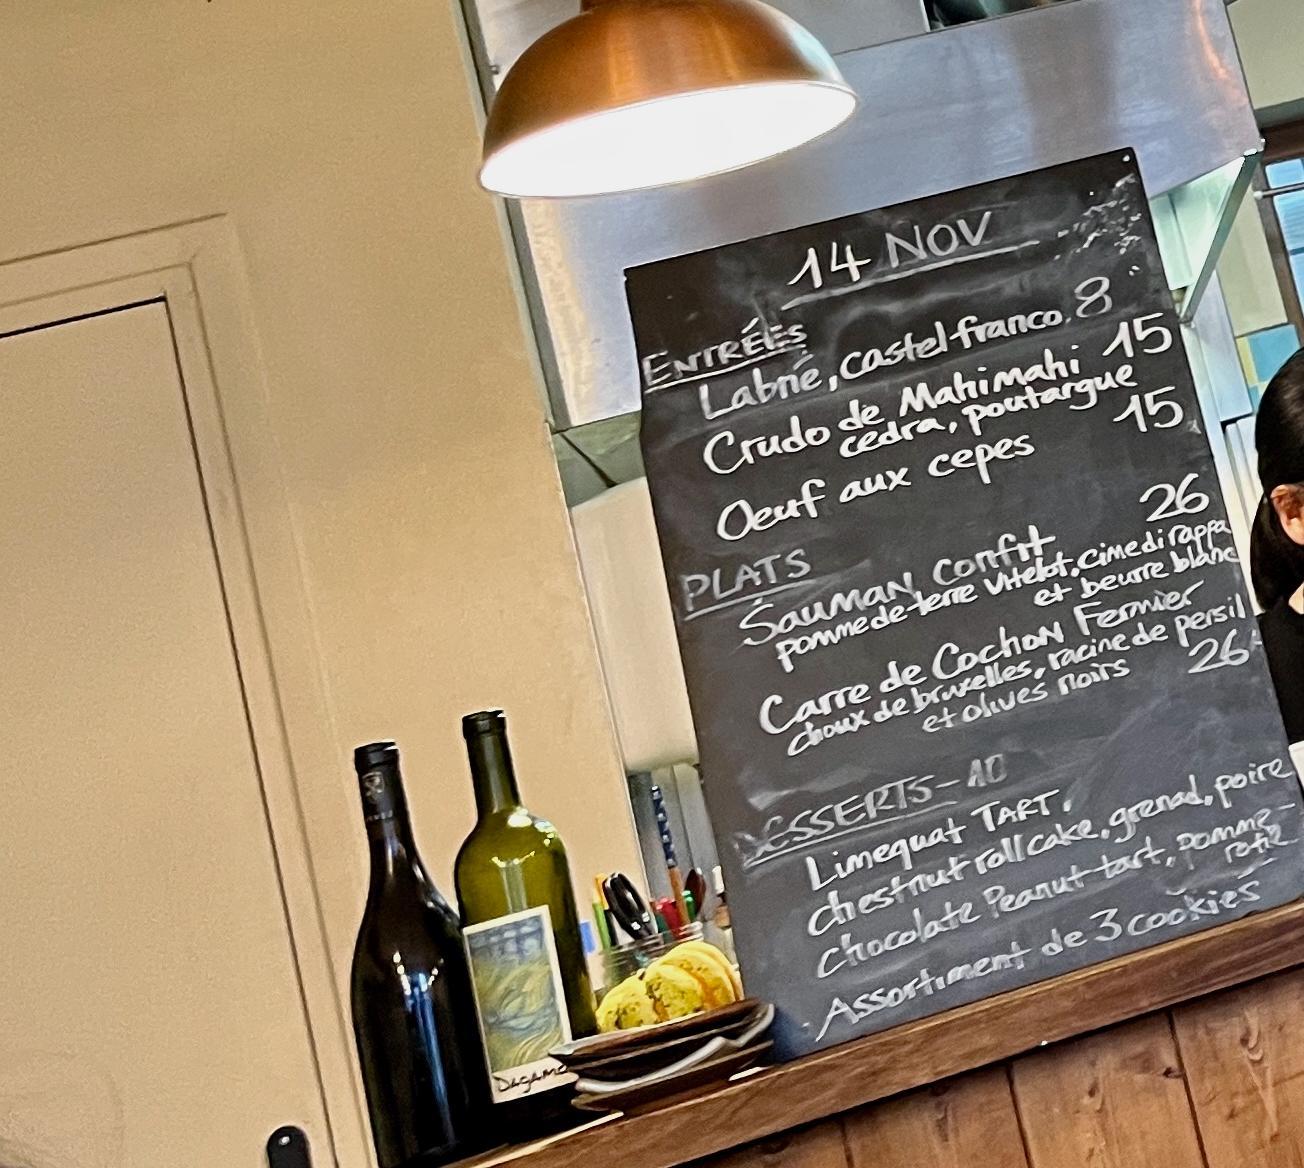 14 NOV
ENTRÉES
Labné, castelfranco. 8
Crudo de Mahimahi 15
cedra, poutargue
Oeuf aux cepes 15
PLATS
Sauman confit 26
pomme de terre Vitelot, cime di rappa
et beurre blanc
Carre de Cochon Fermier
choux de bruxelles, racine de persil
et olives noirs 26
DESSERTS - 10
Limequat TART.
chestnut roll cake, grenad, poire
chocolate Peanut tart, pomme-
rotie
Assortiment de 3 cookies
Dagamo